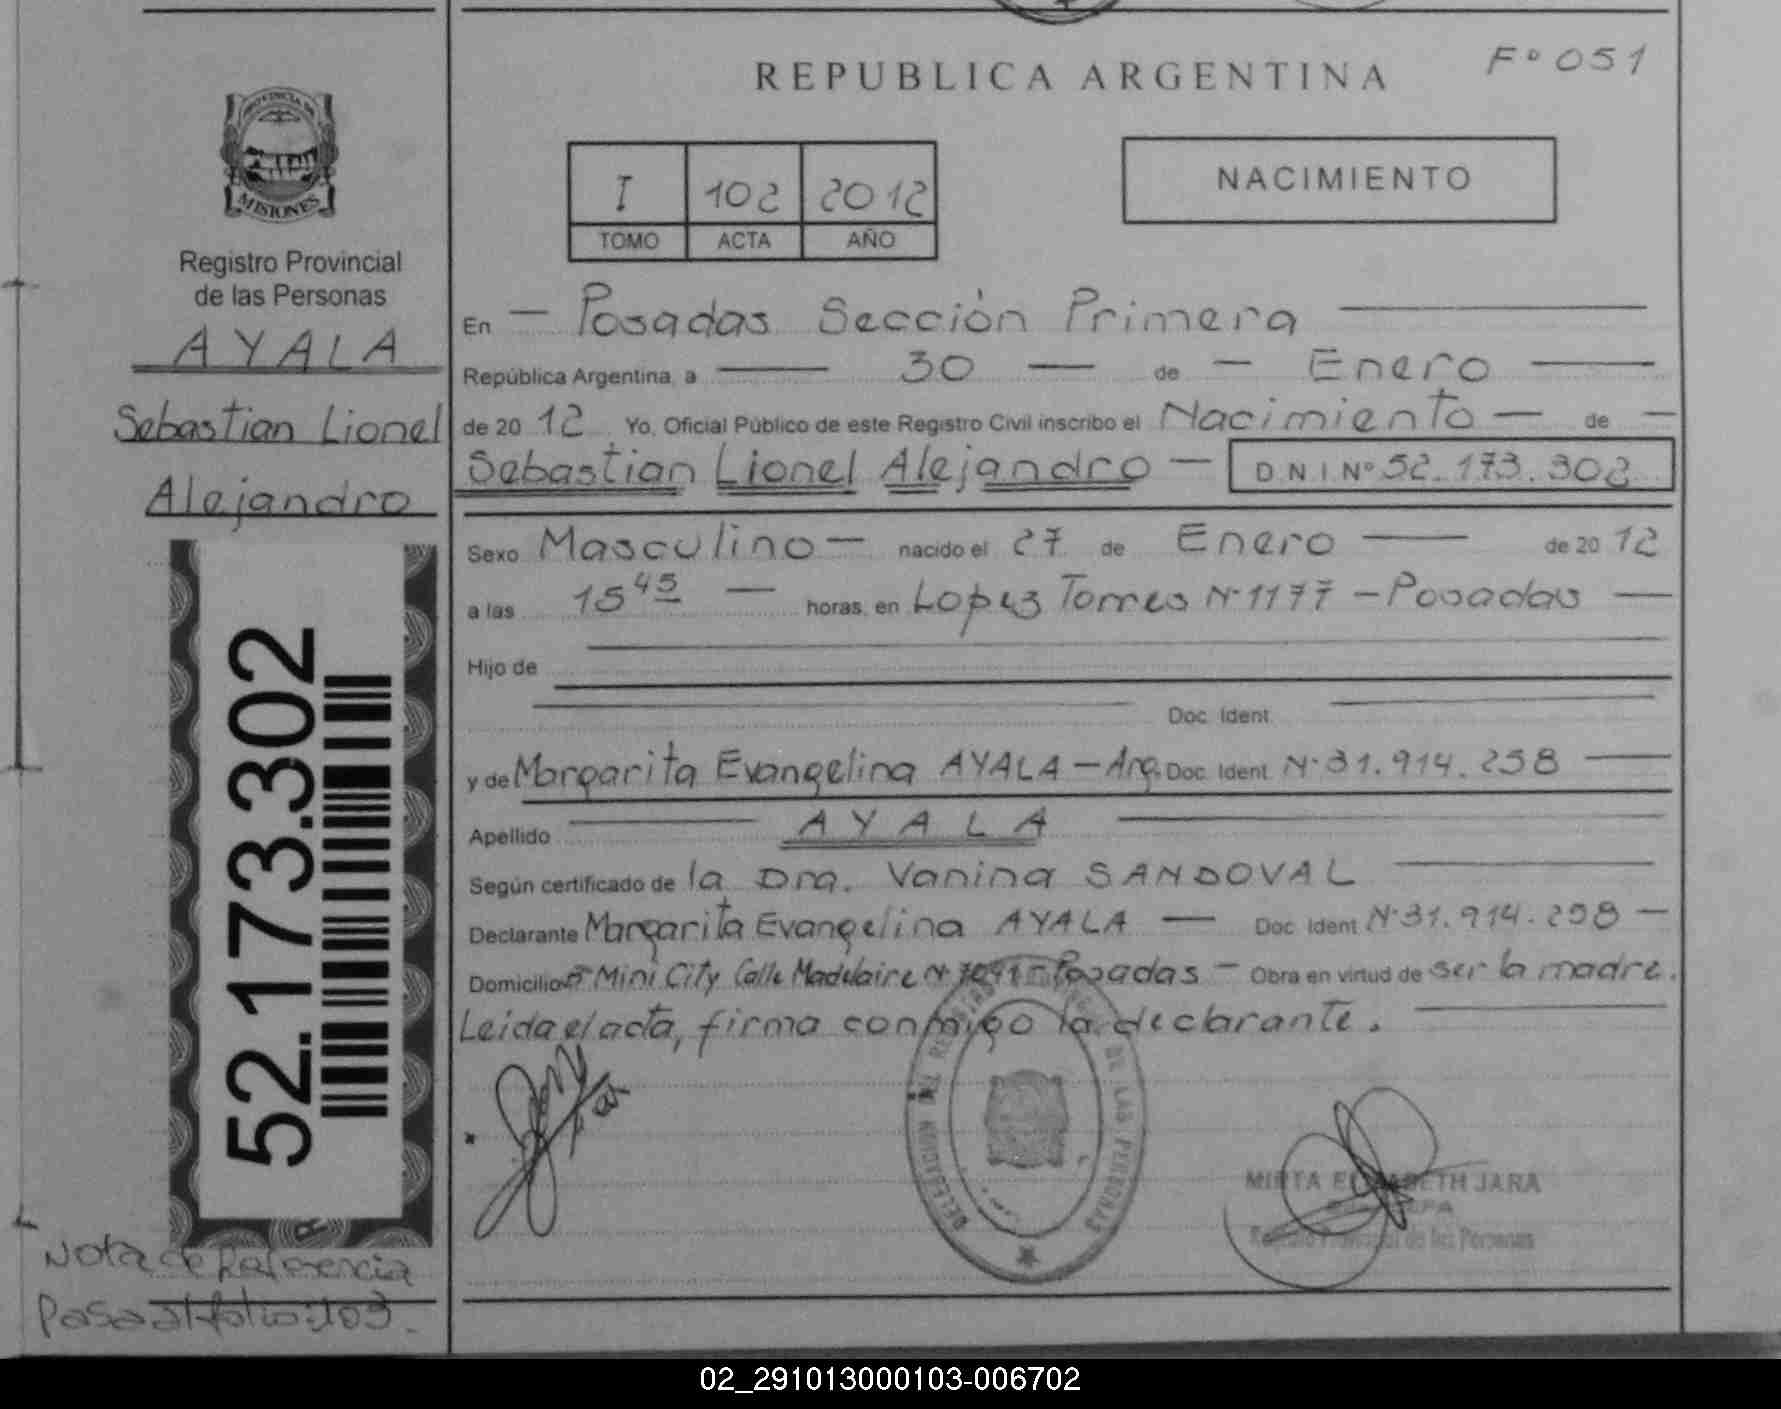 REPUBLICA ARGENTINA
Fº 051
PROVINCIA DE
MISIONES
Registro Provincial
de las Personas
AYALA
Sebastian Lionel
Alejandro
52.173.302
Nota de Referencia
Pasa al folio: 103.
I 102 2012
TOMO ACTA AÑO
NACIMIENTO
En — Posadas Sección Primera
República Argentina, a 30 — de — Enero
de 2012 Yo, Oficial Público de este Registro Civil inscribo el Nacimiento — de —
Sebastian Lionel Alejandro — D.N.I. Nº 52.173.302
Sexo Masculino — nacido el 27 de Enero — de 2012
a las 15 45 — horas, en Lopez Torres Nº 1177 - Posadas —
Hijo de
Doc. Ident.
y de Margarita Evangelina AYALA - Arg. Doc. Ident. Nº 31.914.258
Apellido AYALA
Según certificado de la Dra. Vanina SANDOVAL
Declarante Margarita Evangelina AYALA — Doc. Ident. Nº 31.914.258 —
Domicilio Bº Mini City Calle Madelaire Nº - Posadas — Obra en virtud de ser la madre.
Leida el acta, firma conmigo la declarante.
DELEGACION DEL REGISTRO DE LAS PERSONAS
MIRTA ELIZABETH JARA
Registro Provincial de las Personas
02_291013000103-006702